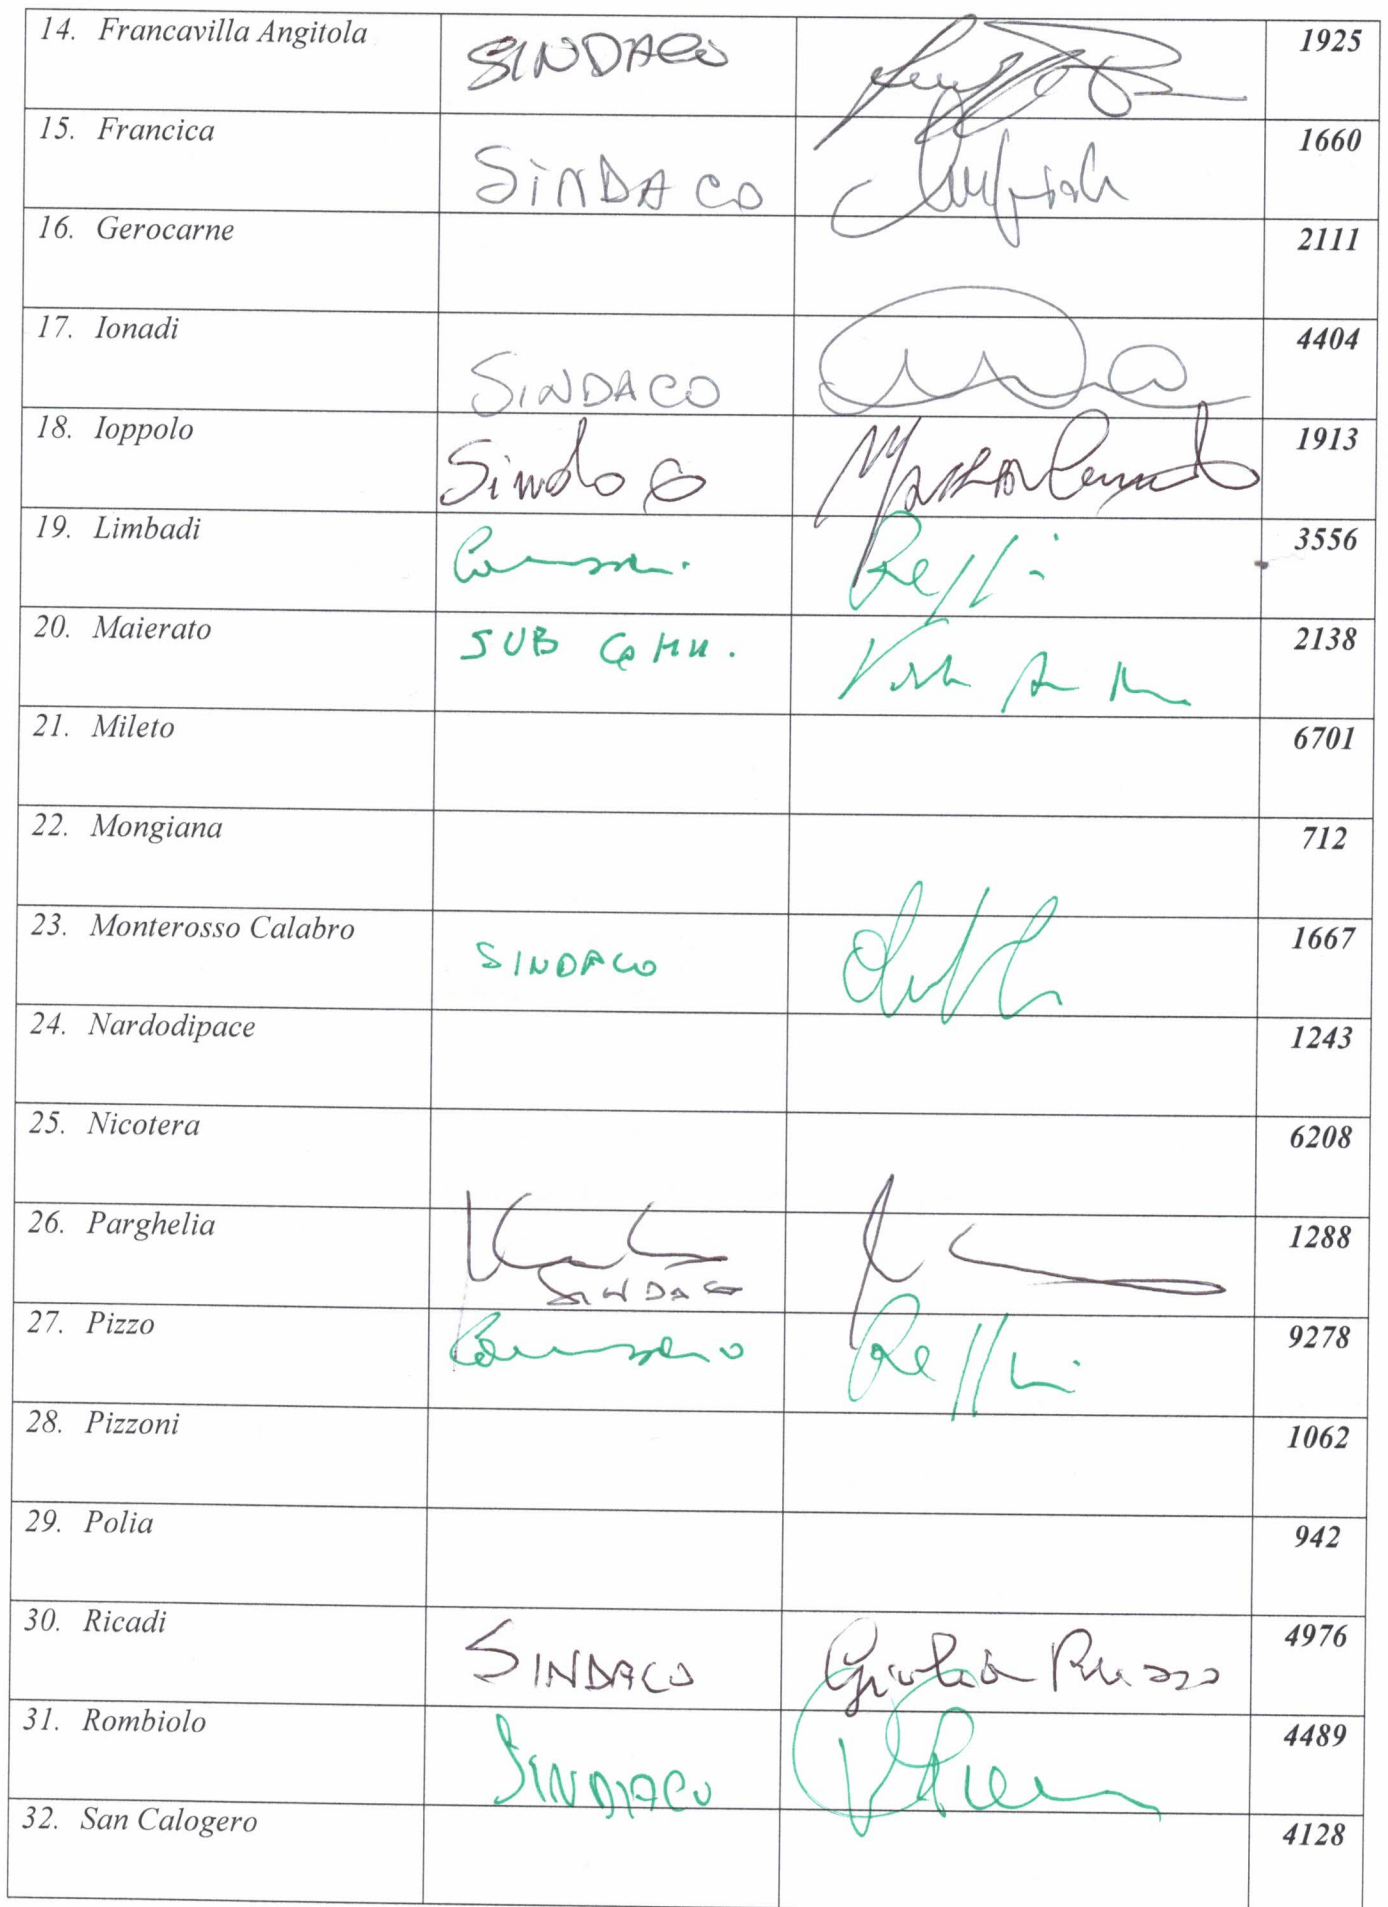 14. Francavilla Angitola SINDACO 1925
15. Francica SINDACO 1660
16. Gerocarne 2111
17. Ionadi SINDACO 4404
18. Ioppolo Sindaco 1913
19. Limbadi 3556
20. Maierato SUB COMM. 2138
21. Mileto 6701
22. Mongiana 712
23. Monterosso Calabro SINDACO 1667
24. Nardodipace 1243
25. Nicotera 6208
26. Parghelia SINDACO 1288
27. Pizzo 9278
28. Pizzoni 1062
29. Polia 942
30. Ricadi SINDACO Giulia Russo 4976
31. Rombiolo SINDACO 4489
32. San Calogero 4128